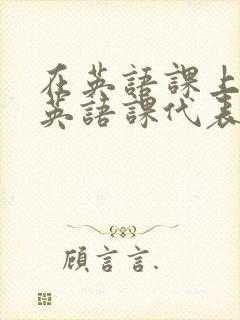 在英語課上
英語課代表
顧言言.